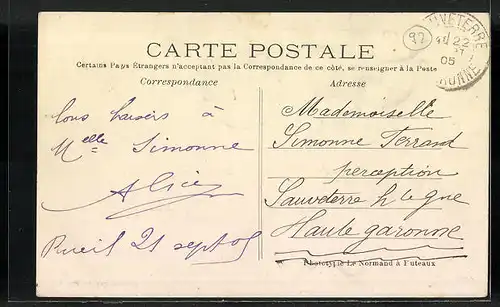 CARTE POSTALE
Certains Pays Étrangers n'acceptant pas la Correspondance de ce côté, se renseigner à la Poste
Correspondance
Adresse
SAUVETERRE
22
05
GARONNE
92
Bons baisers à
Melle Simonne
Alice
Rueil 21 sept 05
Mademoiselle
Simonne Terrand
perception
Sauveterre hte gne
Haute garonne
Phototypie Le Normand à Puteaux